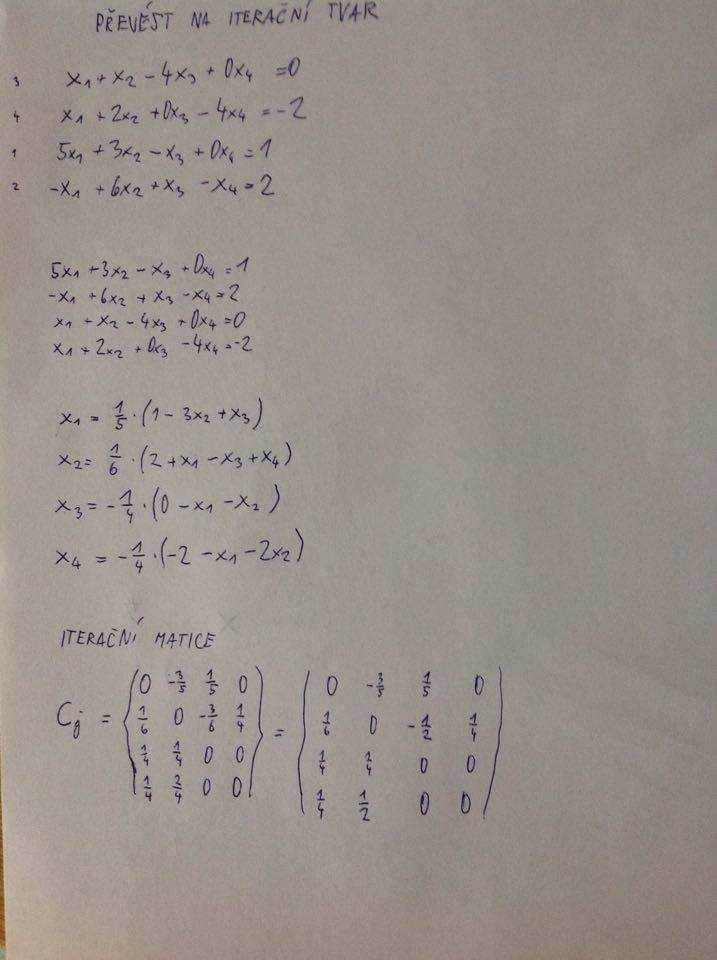 PŘEVÉST NA ITERAČNÍ TVAR
3 x₁ + x₂ - 4x₃ + 0x₄ = 0
4 x₁ + 2x₂ + 0x₃ - 4x₄ = -2
1 5x₁ + 3x₂ - x₃ + 0x₄ = 1
2 -x₁ + 6x₂ + x₃ - x₄ = 2
5x₁ + 3x₂ - x₃ + 0x₄ = 1
-x₁ + 6x₂ + x₃ - x₄ = 2
x₁ + x₂ - 4x₃ + 0x₄ = 0
x₁ + 2x₂ + 0x₃ - 4x₄ = -2
x₁ = 1/5 · (1 - 3x₂ + x₃)
x₂ = 1/6 · (2 + x₁ - x₃ + x₄)
x₃ = -1/4 · (0 - x₁ - x₂)
x₄ = -1/4 · (-2 - x₁ - 2x₂)
ITERAČNÍ MATICE
0 -3/5 1/5 0 0 -3/5 1/5 0
Cj = 1/6 0 -3/6 1/4 = 1/6 0 -1/2 1/4
1/4 1/4 0 0 1/4 1/4 0 0
1/4 2/4 0 0 1/4 1/2 0 0